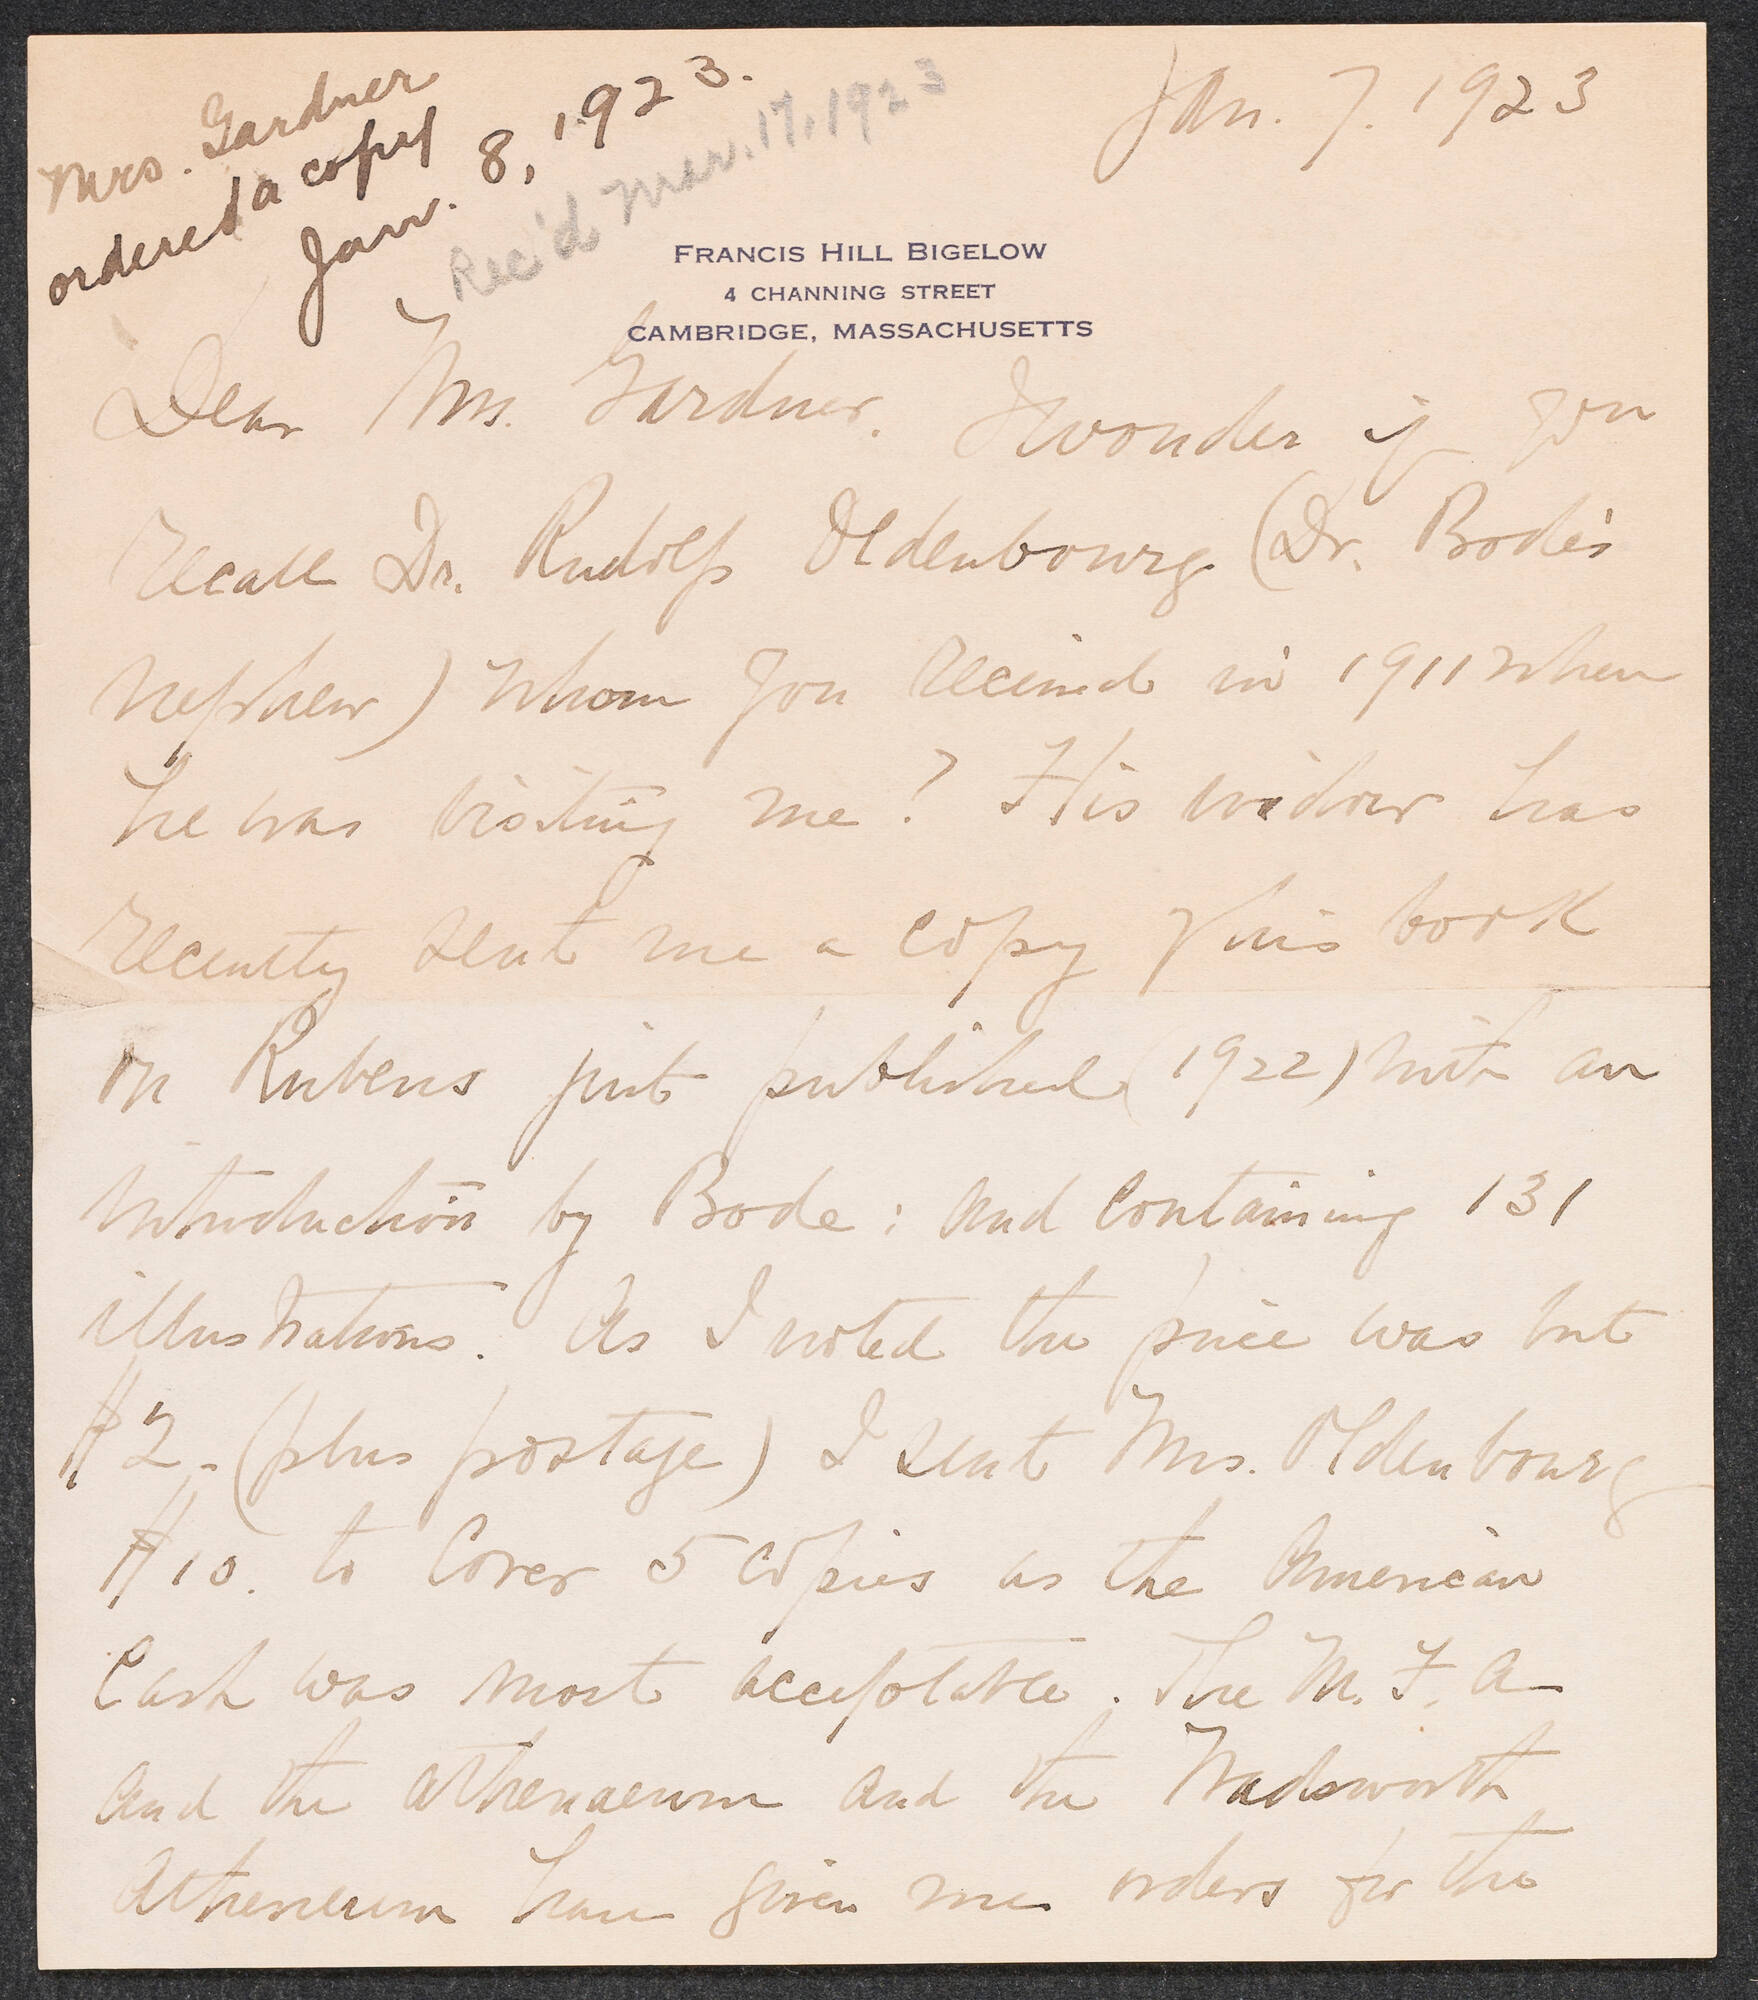 Mrs. Gardner
ordered a copy
Jan. 8, 1923.
Rec'd Mar. 17, 1923
Jan. 7. 1923
FRANCIS HILL BIGELOW
4 CHANNING STREET
CAMBRIDGE, MASSACHUSETTS
Dear Mrs. Gardner. I wonder if you
recall Dr. Rudolf Oldenbourg (Dr. Bode's
nephew) whom you received in 1911 when
he was visiting me? His widow has
recently sent me a copy of his book
on Rubens just published (1922) with an
introduction by Bode: and containing 131
illustrations. As I noted the price was but
$2. (plus postage) I sent Mrs. Oldenbourg
$10. to cover 5 copies as the American
Cash was most acceptable. The M. F. A
and the Athenaeum and the Wadsworth
Atheneum have given me orders for the